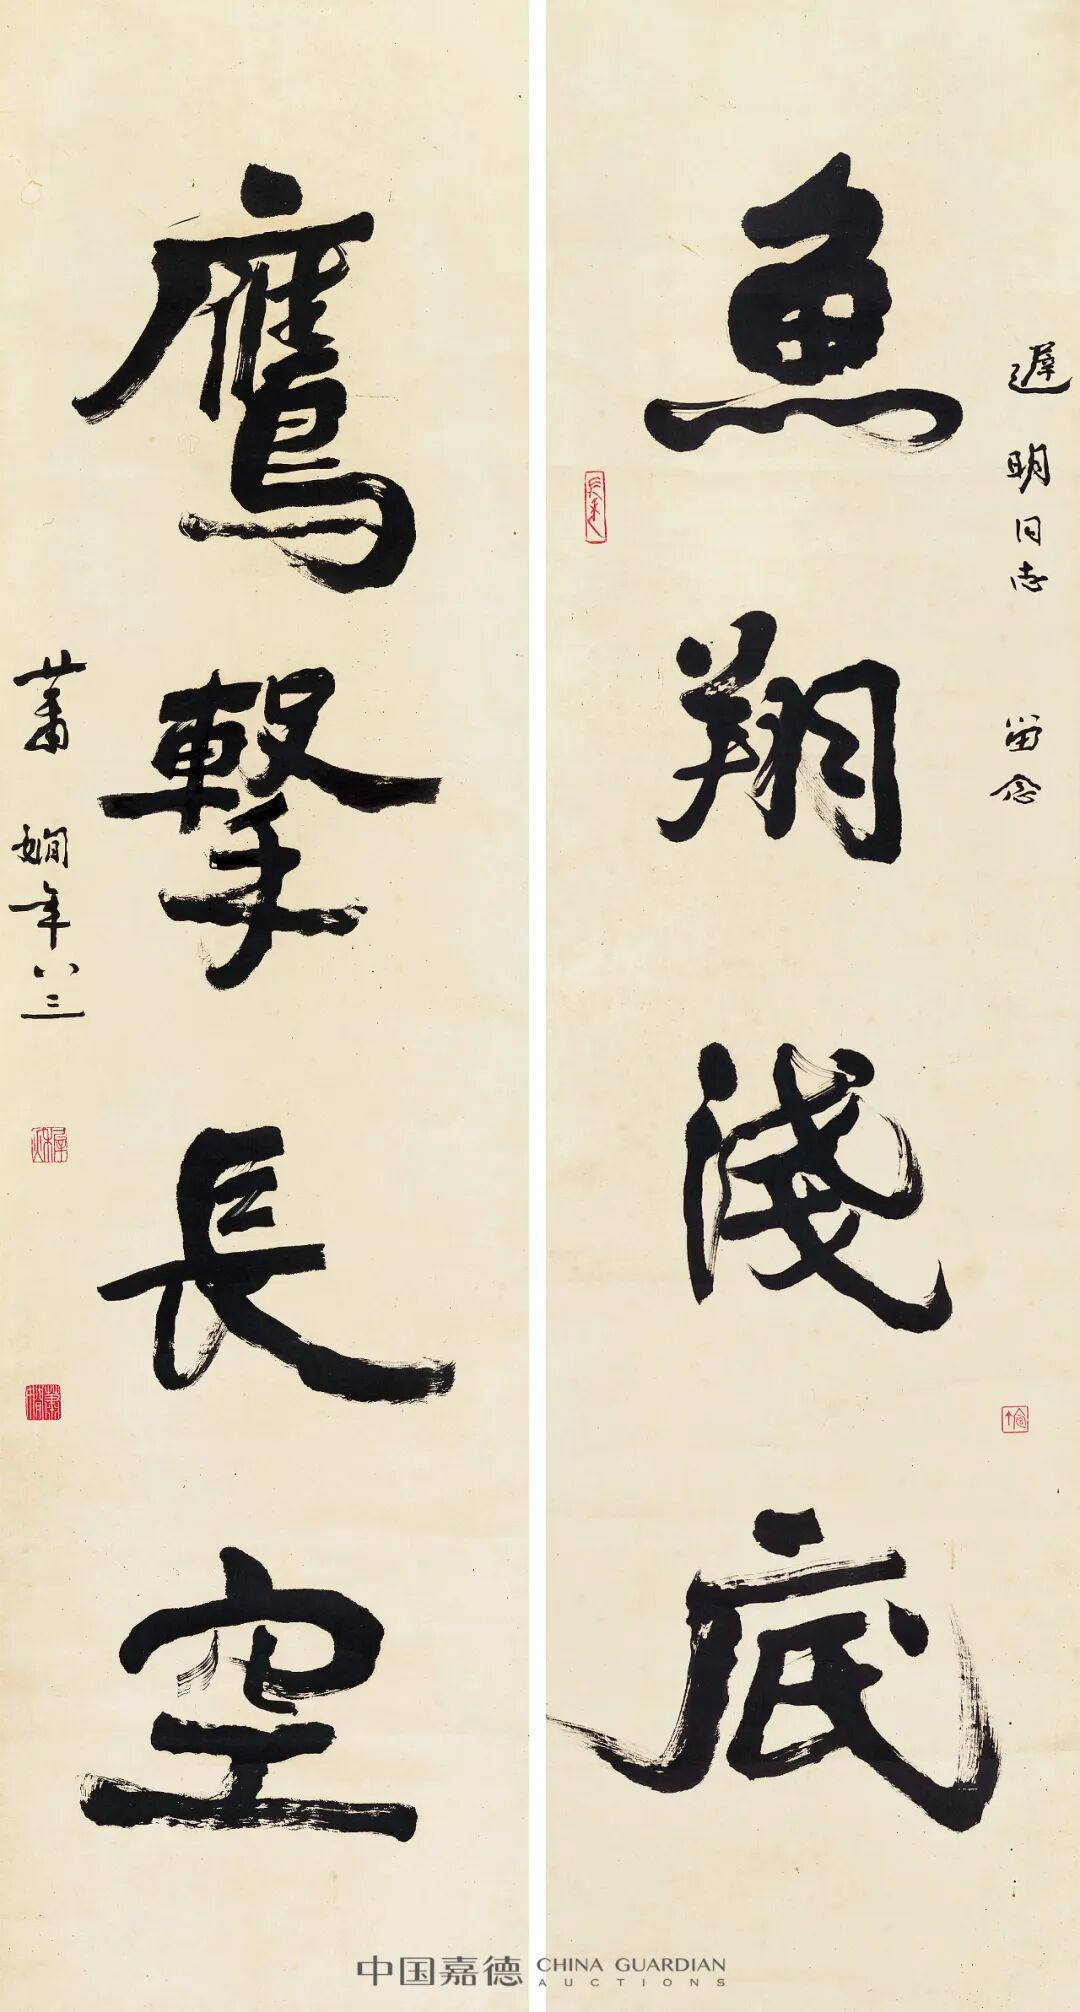 魚翔淺底
遲明同志 留念
鷹擊長空
蕭嫻年八三
中国嘉德 CHINA GUARDIAN
AUCTIONS